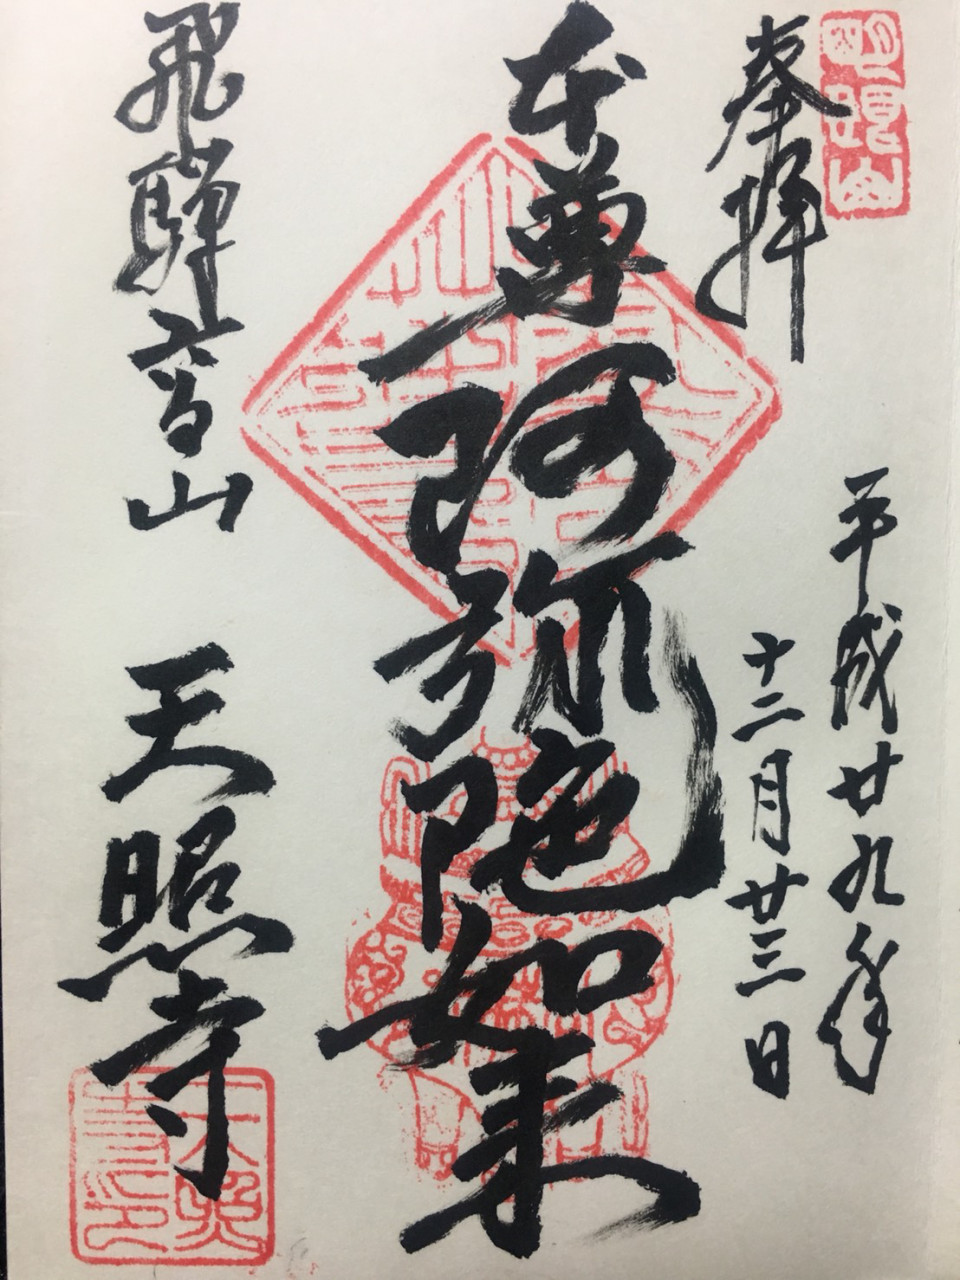 奉拝
平成廿九年
十二月廿三日
本尊
阿弥陀如来
飛騨高山 天照寺